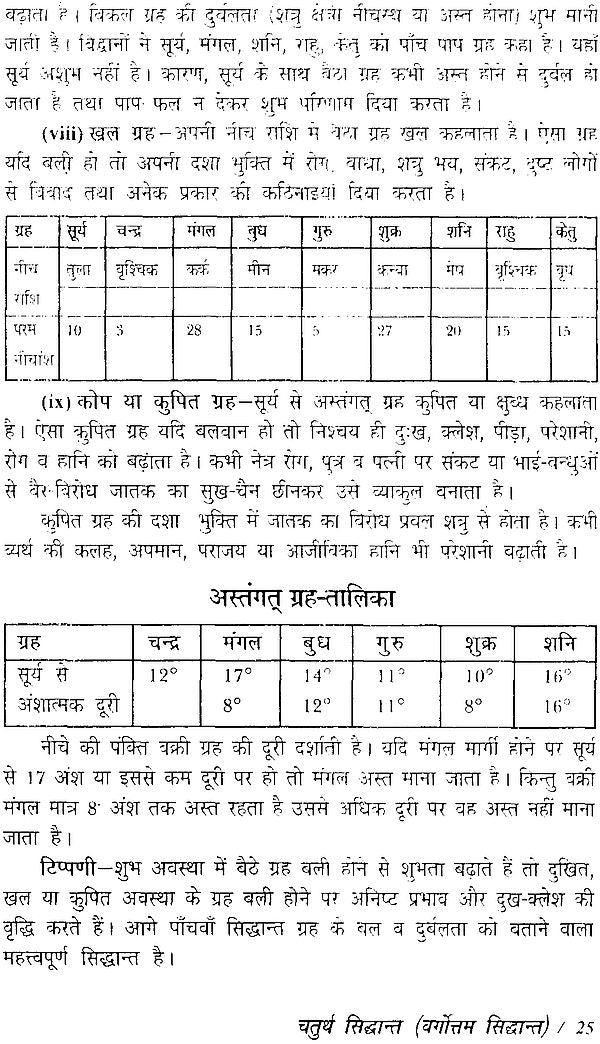 बढ़ाता है। विकल ग्रह की दुर्बलता (शत्रु क्षेत्री नीचस्थ या अस्त होना) शुभ मानी
जाती है। विद्वानों ने सूर्य, मंगल, शनि, राहु, केतु को पाँच पाप ग्रह कहा है। यहाँ
सूर्य अशुभ नहीं है। कारण, सूर्य के साथ बैठा ग्रह कभी अस्त होने से दुर्बल हो
जाता है तथा पाप फल न देकर शुभ परिणाम दिया करता है।
(viii) खल ग्रह–अपनी नीच राशि में बैठा ग्रह खल कहलाता है। ऐसा ग्रह
यदि बली हो तो अपनी दशा भुक्ति में रोग, बाधा, शत्रु भय, संकट, दुष्ट लोगों
से विवाद तथा अनेक प्रकार की कठिनाइयां दिया करता है।
ग्रह सूर्य चन्द्र मंगल बुध गुरु शुक्र शनि राहु केतु
नीच तुला वृश्चिक कर्क मीन मकर कन्या मेष वृश्चिक वृष
राशि
परम 10 3 28 15 5 27 20 15 15
नीचांश
(ix) कोप या कुपित ग्रह–सूर्य से अस्तंगत् ग्रह कुपित या क्षुब्ध कहलाता
है। ऐसा कुपित ग्रह यदि बलवान हो तो निश्चय ही दुःख, क्लेश, पीड़ा, परेशानी,
रोग व हानि को बढ़ांता है। कभी नेत्र रोग, पुत्र व पत्नी पर संकट या भाई-बन्धुओं
से वैर-विरोध जातक का सुख-चैन छीनकर उसे व्याकुल बनाता है।
कुपित ग्रह की दशा भुक्ति में जातक का विरोध प्रबल शत्रु से होता है। कभी
व्यर्थ की कलह, अपमान, पराजय या आजीविका हानि भी परेशानी बढ़ाती है।
अस्तंगत् ग्रह-तालिका
ग्रह चन्द्र मंगल बुध गुरु शुक्र शनि
सूर्य से 12° 17° 14° 11° 10° 16°
अंशात्मक दूरी 8° 12° 11° 8° 16°
नीचे की पंक्ति वक्री ग्रह की दूरी दर्शाती है। यदि मंगल मार्गी होने पर सूर्य
से 17 अंश या इससे कम दूरी पर हो तो मंगल अस्त माना जाता है। किन्तु वक्री
मंगल मात्र 8° अंश तक अस्त रहता है उससे अधिक दूरी पर वह अस्त नहीं माना
जाता है।
टिप्पणी–शुभ अवस्था में बैठे ग्रह बली होने से शुभता बढ़ाते हैं तो दुखित,
खल या कुपित अवस्था के ग्रह बली होने पर अनिष्ट प्रभाव और दुख-क्लेश की
वृद्धि करते हैं। आगे पाँचवाँ सिद्धान्त ग्रह के बल व दुर्बलता को बताने वाला
महत्त्वपूर्ण सिद्धान्त है।
चतुर्थ सिद्धान्त (वर्गोत्तम सिद्धान्त) / 25